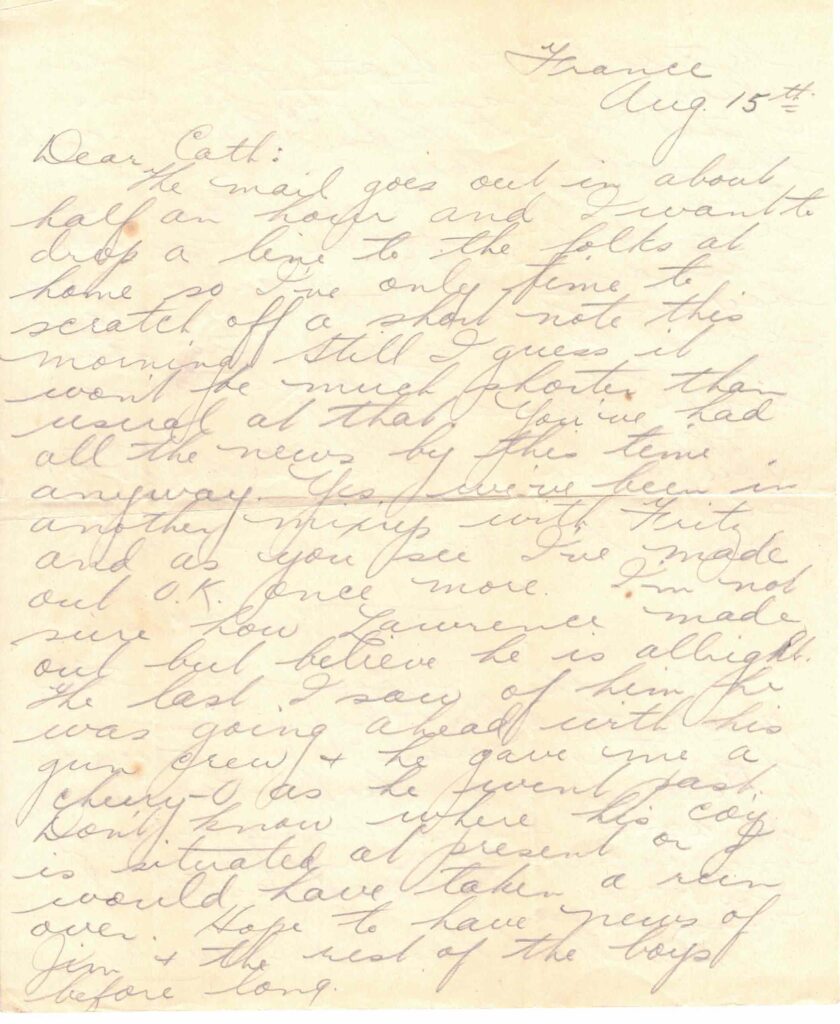 France
Aug. 15th
Dear Cath:
The mail goes out in about
half an hour and I want to
drop a line to the folks at
home so I've only time to
scratch off a short note this
morning. Still I guess it
won't be much shorter than
usual at that. You've had
all the news by this time
anyway. Yes, we've been in
another mixup with Fritz
and as you see I've made
out O.K. once more. I'm not
sure how Lawrence made
out but believe he is allright.
The last I saw of him he
was going ahead with his
gun crew + he gave me a
cheery-O as he went past.
Don't know where his coy
is situated at present or I
would have taken a run
over. Hope to have news of
Jim + the rest of the boys
before long.